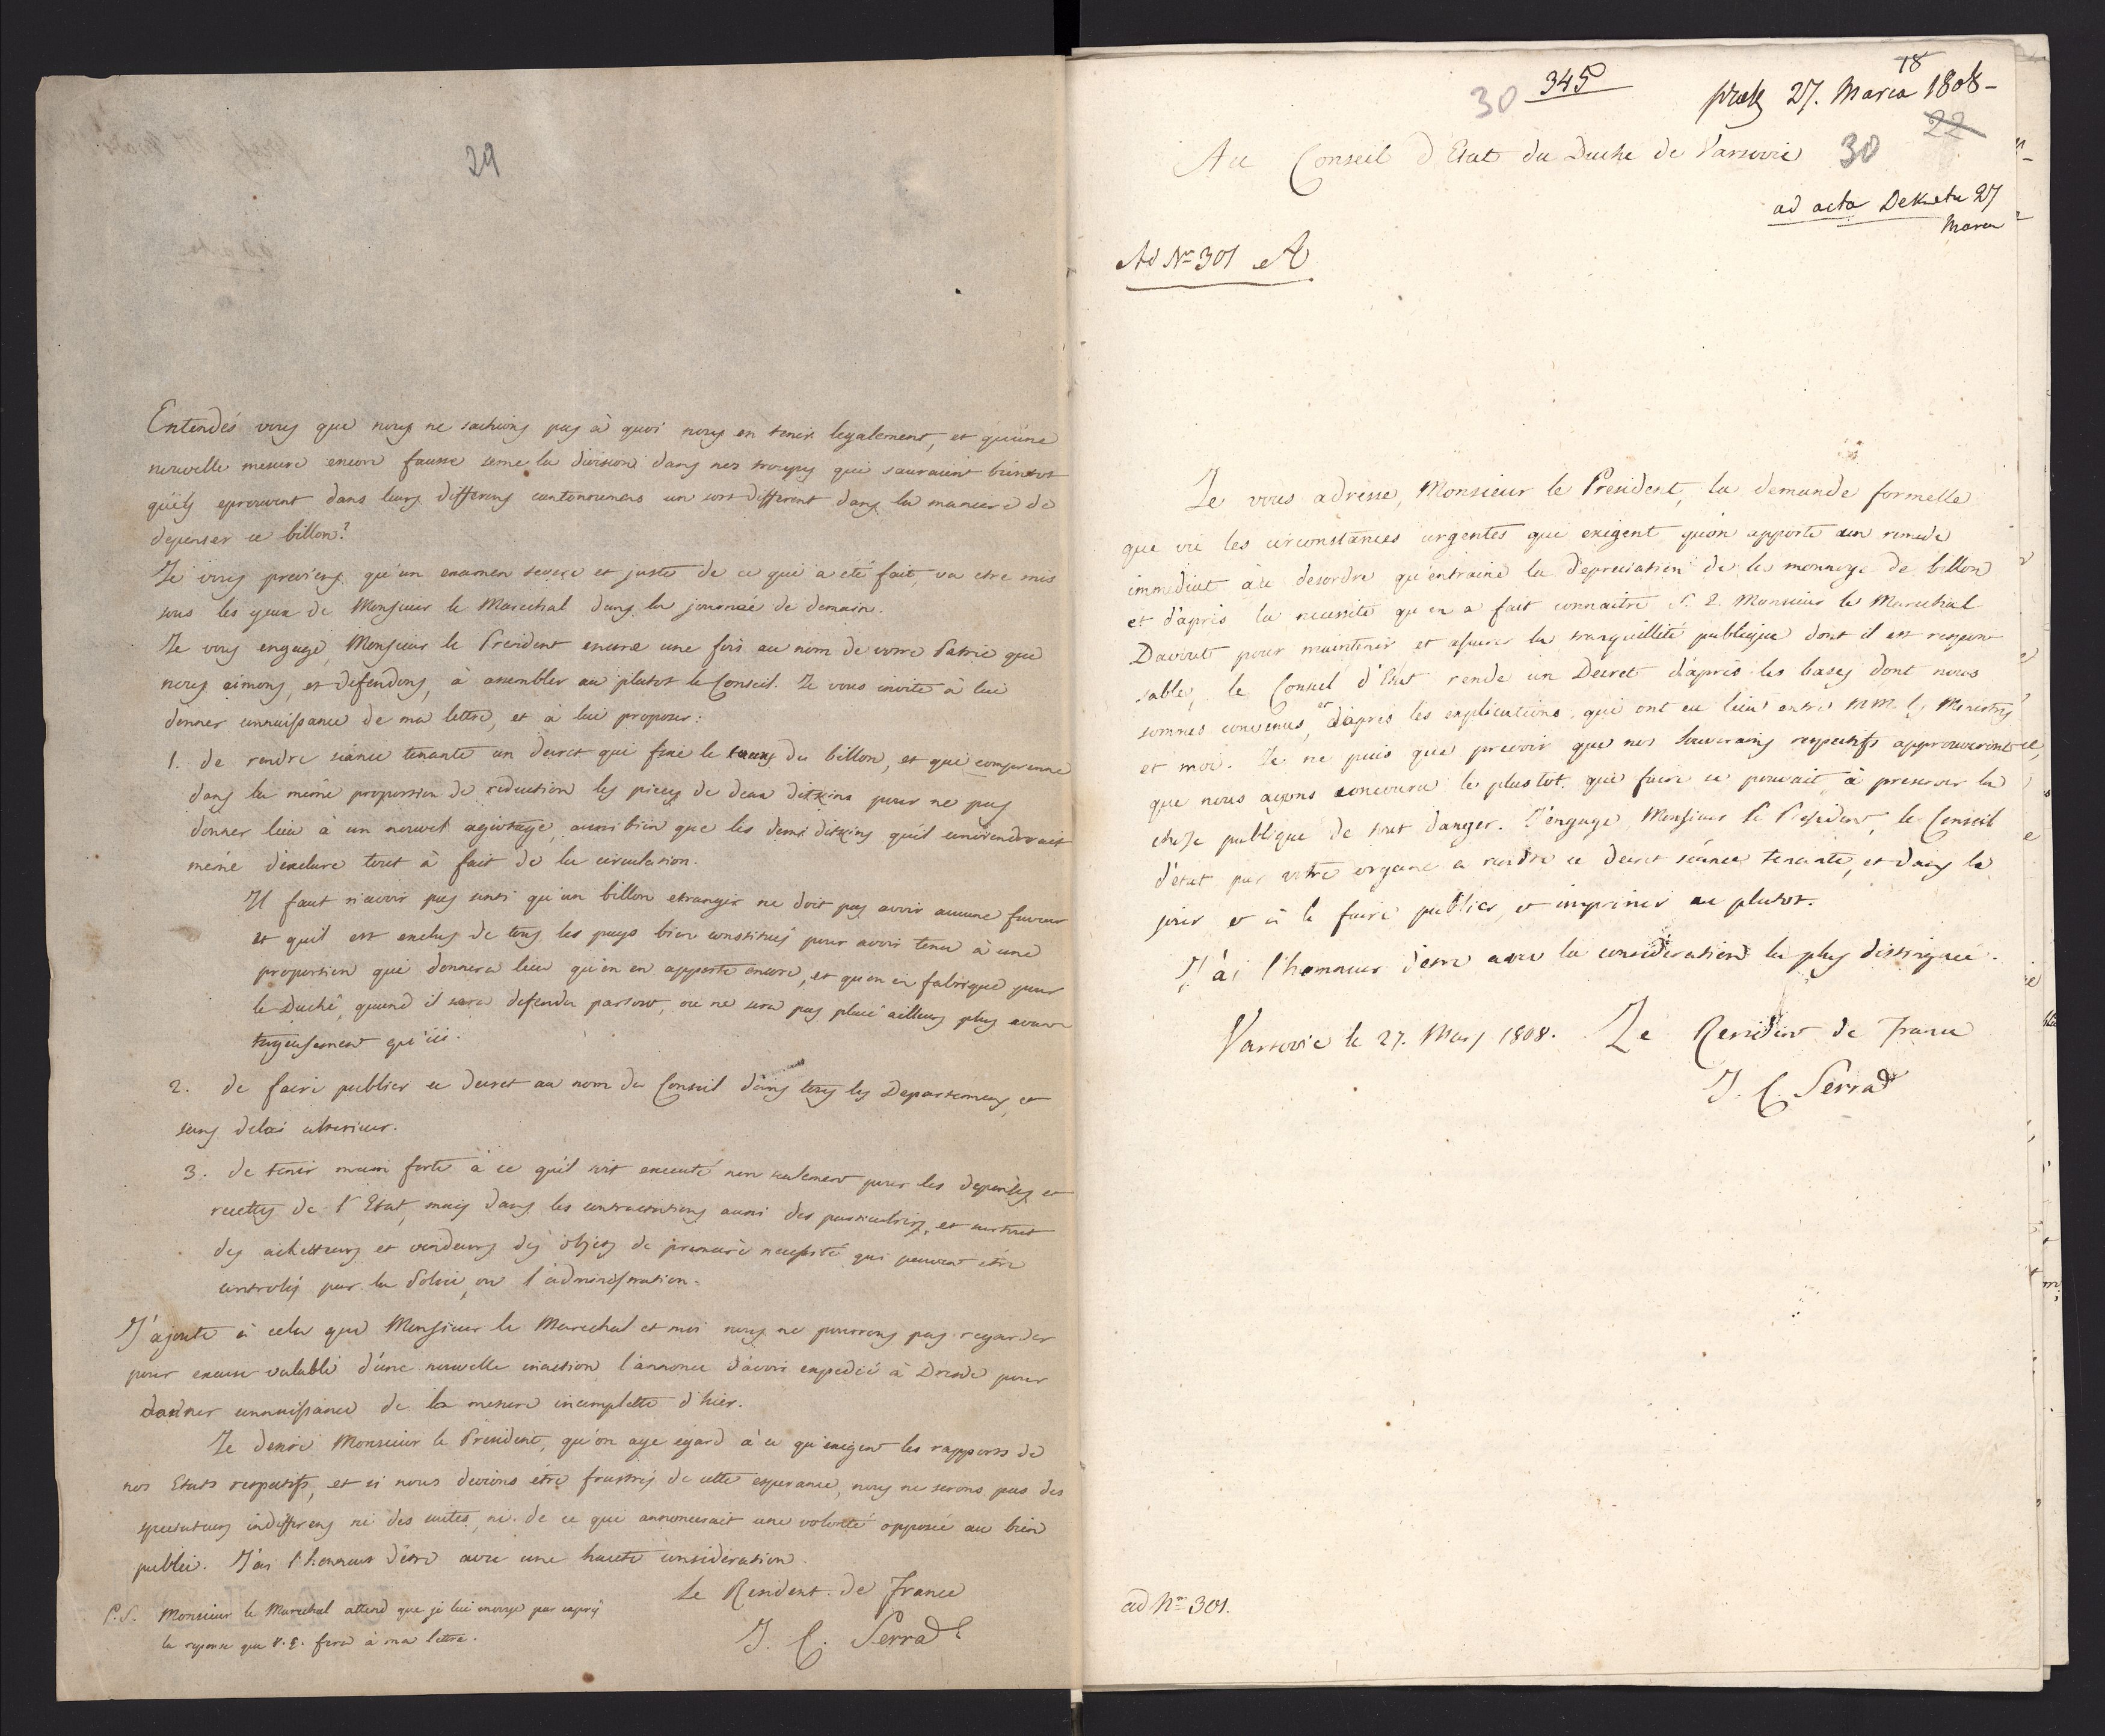 29
Entendés vous que nous ne sachions pas à quoi nous en tenir legalement, et qu'une
nouvelle mesure encore fausse seme la division dans nos troupes qui sauraient bientot
qu'ils eprouvent dans leurs differens cantonnemens un sort different dans la maniere de
depenser ce billon?
Je vous previens qu'un examen severe et juste de ce qui a été fait, va etre mis
sous les yeux de Monsieur le Marechal dans la journée de demain.
Je vous engage, Monsieur le President encore une fois au nom de votre Patrie que
nous aimons, et defendons, à assembler au plutot le Conseil. Je vous invite à lui
donner connaissance de ma lettre, et à lui proposer:
1. de rendre séance tenante un decret qui fixe le taux du billon, et qui comprenne
dans la même proportion de reduction les pieces de deux ditkins pour ne pas
donner lieu à un nouvel agiotage, aussi bien que les demi ditkins qu'il conviendrait
même d'exclure tout à fait de la circulation.
Il faut n'avoir pas senti qu'un billon etranger ne doit pas avoir aucune faveur
et qu'il est exclus de tous les pays bien constitués pour avoir tenu à une
proportion qui donnera lieu qu'on en apporte encore, et qu'on en fabrique pour
le Duché, quand il sera defendu partout, ou ne sera pas placé ailleurs plus avan-
tageusement qu'ici.
2. de faire publier ce decret au nom du Conseil dans tous les Departemens, et
sans delai ulterieur.
3. de tenir main forte à ce qu'il soit executé non seulement pour les depenses et
recettes de l'Etat, mais dans les contractations aussi des particuliers, et surtout
des achetteurs et vendeurs des objets de premiere necessité qui peuvent être
controlés par la Police, ou l'administration.
J'ajoute à cela que Monsieur le Marechal et moi nous ne pourrons pas regarder
pour excuse valable d'une nouvelle inaction l'annonce d'avoir expedié à Dresde pour
donner connaissance de la mesure incomplette d'hier.
Je desire Monsieur le President, qu'on aye egard à ce qu'exigent les rapports de
nos Etats respectifs, et si nous devions être frustrés de cette esperance, nous ne serons pas des
spectateurs indifferens ni des suites, ni de ce qui annoncerait une volonté opposée au bien
public. J'ai l'honneur d'etre avec une haute consideration.
Le Resident de France
J. C. Serra
P.S. Monsieur le Marechal attend que je lui envoye par exprès
la reponse que V.E. fera à ma lettre.
18
30 345 27. Marca 1808-
22
Au Conseil d'Etat du Duché de Varsovie 30
ad acta Dekretu 27
Marca
Ad Nr 301
Je vous adresse, Monsieur le President, la demande formelle
que vu les circonstances urgentes qui exigent qu'on apporte un remede
immediat au desordre qu'entraine la depreciation de la monnoye de billon
et d'après la necessité qu'en a fait connaitre S. E. Monsieur le Marechal
Davout pour maintenir et assurer la tranquillité publique dont il est respon-
sable, le Conseil d'Etat rende un Decret d'après les bases dont nous
sommes convenus, et d'après les explications qui ont eu lieu entre MM. les Ministres
et moi. Je ne puis que prevoir que nos Souverains respectifs approuveront
que nous ayons concouru le plustot que faire ce pouvait à preserver la
chose publique de tout danger. J'engage, Monsieur le President, le Conseil
d'état par votre organe à rendre ce decret séance tenante, et dans le
jour et à le faire publier, et imprimer au plutot.
J'ai l'honneur d'etre avec la consideration la plus distinguée.
Varsovie le 27. Mars 1808. Le Resident de France
J. C. Serra
ad Nr 301.